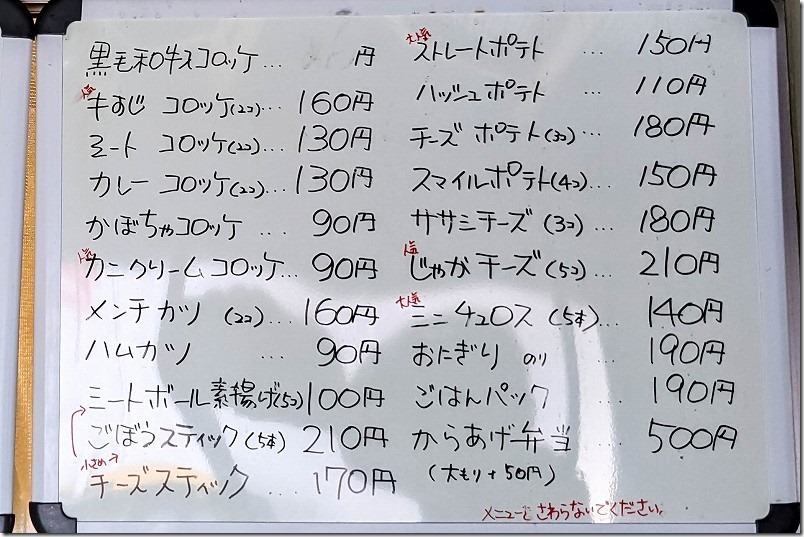 黒毛和牛コロッケ… 円
人気
牛すじ コロッケ(2コ)… 160円
ミート コロッケ(2コ)… 130円
カレー コロッケ(2コ)… 130円
かぼちゃコロッケ … 90円
人気
カニクリームコロッケ… 90円
メンチカツ (2コ)… 160円
ハムカツ … 90円
ミートボール素揚げ(5コ)100円
ごぼうスティック(5本) 210円
小さめ→
チーズスティック … 170円
大人気
ストレートポテト … 150円
ハッシュポテト … 110円
チーズ ポテト(3コ)… 180円
スマイルポテト(4コ)… 150円
ササミチーズ (3コ)… 180円
人気
じゃがチーズ(5コ)… 210円
大人気
ミニチュロス (5本)… 140円
おにぎり のり … 190円
ごはんパック … 190円
からあげ弁当 … 500円
(大もり+50円)
メニューにさわらないでください。